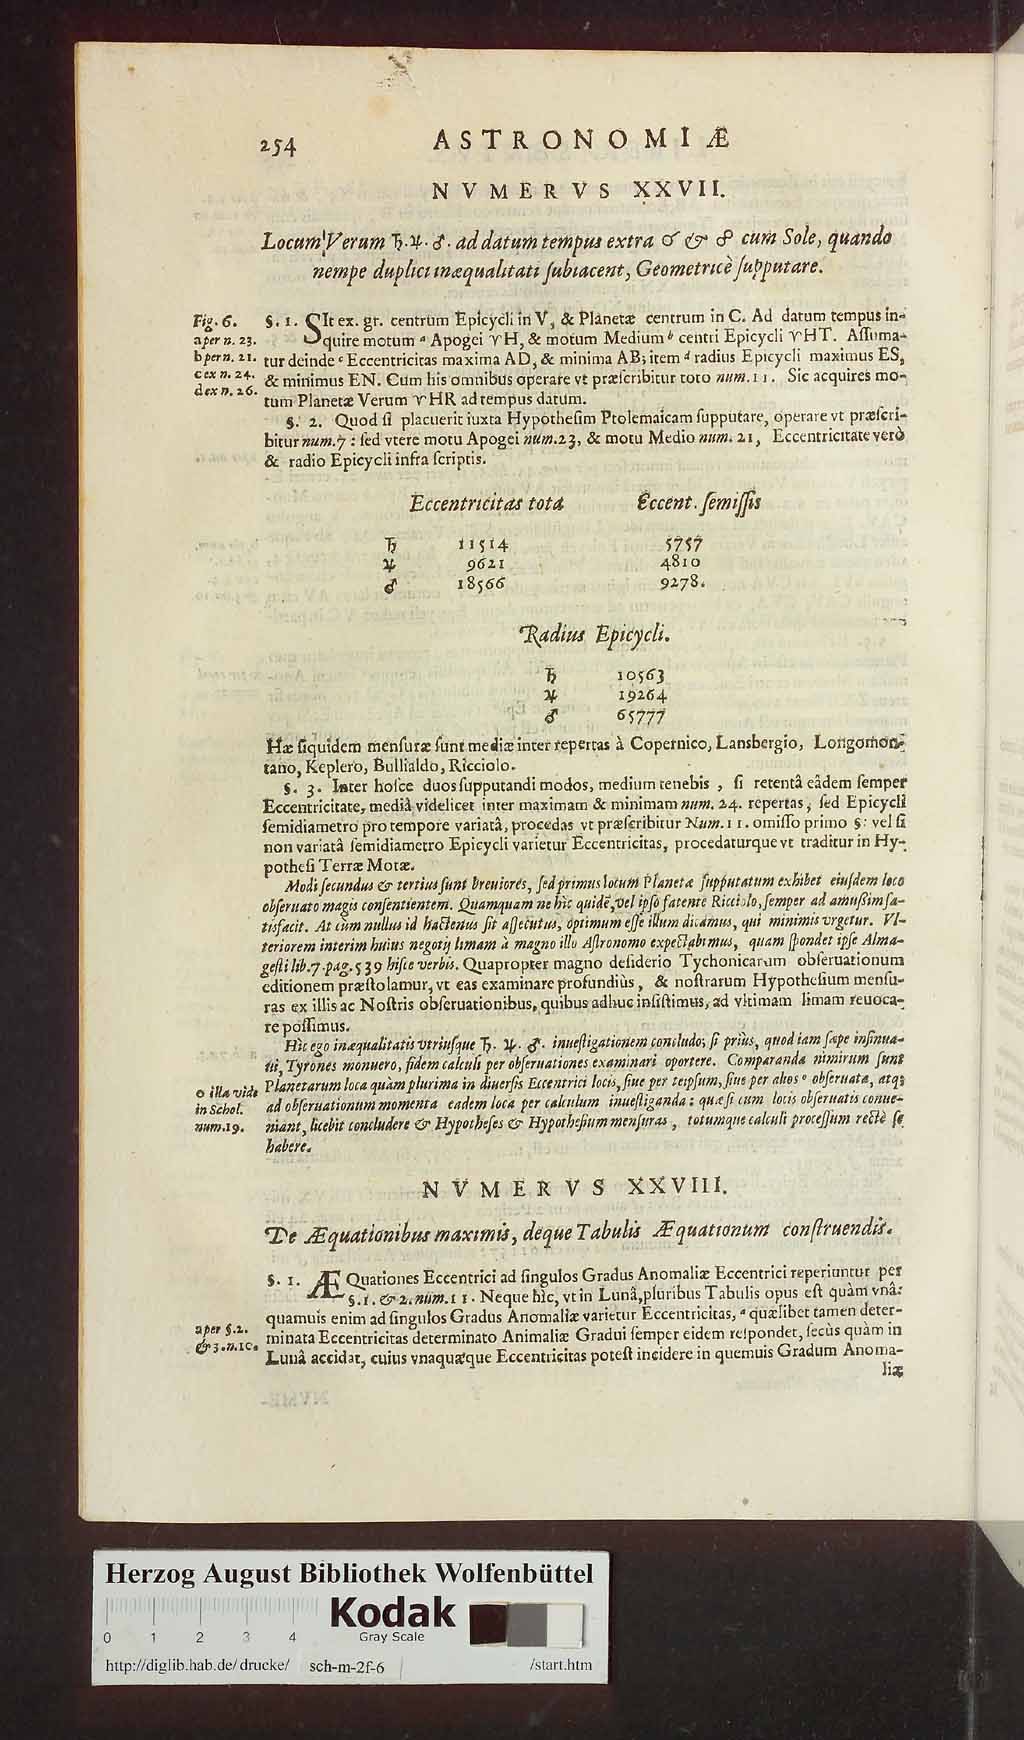 254 ASTRONOMIÆ
NVMERVS XXVII.
Locum Verum ♄.♃.♂. ad datum tempus extra ☌ & ☍ cum Sole, quando
nempe duplici inæqualitati ſubiacent, Geometricè ſupputare.
Fig. 6.
a per n. 23.
b per n. 21.
c ex n. 24.
d ex n. 26.
§. 1. SIt ex. gr. centrum Epicycli in V, & Planetæ centrum in C. Ad datum tempus in-
quire motum ᵃ Apogei ♈H, & motum Medium ᵇ centri Epicycli ♈HT. Aſſuma-
tur deinde ᶜ Eccentricitas maxima AD, & minima AB; item ᵈ radius Epicycli maximus ES,
& minimus EN. Cum his omnibus operare vt præſcribitur toto num. 11. Sic acquires mo-
tum Planetæ Verum ♈HR ad tempus datum.
§. 2. Quod ſi placuerit iuxta Hypotheſim Ptolemaicam ſupputare, operare vt præſcri-
bitur num. 7 : ſed vtere motu Apogei num. 23, & motu Medio num. 21, Eccentricitate verò
& radio Epicycli infra ſcriptis.
Eccentricitas tota Eccent. ſemiſſis
♄ 11514 5757
♃ 9621 4810
♂ 18566 9278.
Radius Epicycli.
♄ 10563
♃ 19264
♂ 65777
Hæ ſiquidem menſuræ ſunt mediæ inter repertas à Copernico, Lansbergio, Longomon-
tano, Keplero, Bullialdo, Ricciolo.
§. 3. Inter hoſce duos ſupputandi modos, medium tenebis, ſi retentâ eâdem ſemper
Eccentricitate, mediâ videlicet inter maximam & minimam num. 24. repertas, ſed Epicycli
ſemidiametro pro tempore variatâ, procedas vt præſcribitur Num. 11. omiſſo primo §: vel ſi
non variatâ ſemidiametro Epicycli varietur Eccentricitas, procedaturque vt traditur in Hy-
potheſi Terræ Motæ.
Modi ſecundus & tertius ſunt breuiores, ſed primus locum Planetæ ſupputatum exhibet eiuſdem loco
obſeruato magis conſentientem. Quamquam ne hìc quidē, vel ipſo fatente Ricciolo, ſemper ad amuſſim ſa-
tisfacit. At cùm nullus id hactenus ſit aſſecutus, optimum eſſe illum dicamus, qui minimis vrgetur. Vl-
teriorem interim huius negotij limam à magno illo Aſtronomo expectabimus, quam ſpondet ipſe Alma-
geſti lib. 7. pag. 539 hiſce verbis. Quapropter magno deſiderio Tychonicarum obſeruationum
editionem præſtolamur, vt eas examinare profundiùs, & noſtrarum Hypotheſium menſu-
ras ex illis ac Noſtris obſeruationibus, quibus adhuc inſiſtimus, ad vltimam limam reuoca-
re poſſimus.
Hìc ego inæqualitatis vtriuſque ♄. ♃. ♂. inueſtigationem concludo; ſi priùs, quod iam ſæpe inſinua-
ui, Tyrones monuero, fidem calculi per obſeruationes examinari oportere. Comparanda nimirum ſunt
o illa vide
in Schol.
num. 19.
Planetarum loca quàm plurima in diuerſis Eccentrici locis, ſiue per teipſum, ſiue per alios ᵒ obſeruata, atq;
ad obſeruationum momenta eadem loca per calculum inueſtiganda: quæ ſi cum locis obſeruatis conue-
niant, licebit concludere & Hypotheſes & Hypotheſium menſuras, totumque calculi proceſſum rectè ſe
habere.
NVMERVS XXVIII.
De Æquationibus maximis, deque Tabulis Æquationum conſtruendis.
§. 1. ÆQuationes Eccentrici ad ſingulos Gradus Anomaliæ Eccentrici reperiuntur per
§. 1. & 2. num. 11. Neque hìc, vt in Lunâ, pluribus Tabulis opus eſt quàm vnâ:
quamuis enim ad ſingulos Gradus Anomaliæ varietur Eccentricitas, ᵃ quælibet tamen deter-
a per §. 2.
& 3. n. 10.
minata Eccentricitas determinato Animaliæ Gradui ſemper eidem reſpondet, ſecùs quàm in
Lunâ accidat, cuius vnaquæque Eccentricitas poteſt incidere in quemuis Gradum Anoma-
liæ
Herzog August Bibliothek Wolfenbüttel
Kodak
Gray Scale
0 1 2 3 4
http://diglib.hab.de/drucke/ sch-m-2f-6 /start.htm